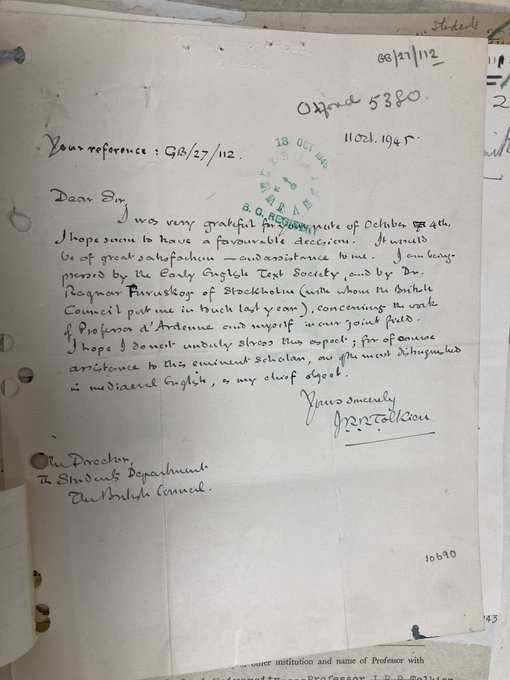 Students
GB/27/112
Oxford 5380.
11 Oct. 1945.
Your reference: GB/27/112.
13 OCT 1945
B. C. REGISTRY
Dear Sir,
I was very grateful for your note of October 4th.
I hope soon to have a favourable decision. It would
be of great satisfaction – and assistance to me. I am being
pressed by the Early English Text Society, and by Dr.
Ragnar Furuskog of Stockholm (with whom the British
Council put me in touch last year), concerning the work
of Professor d'Ardenne and myself in our joint field.
I hope I do not unduly stress this aspect; for of course
assistance to this eminent scholar, one of the most distinguished
in mediaeval English, is my chief object.
Yours sincerely
J.R.R. Tolkien
The Director,
The Students Department
The British Council.
20690
243
other institution and name of Professor with
University
Professor J R R Tolkien